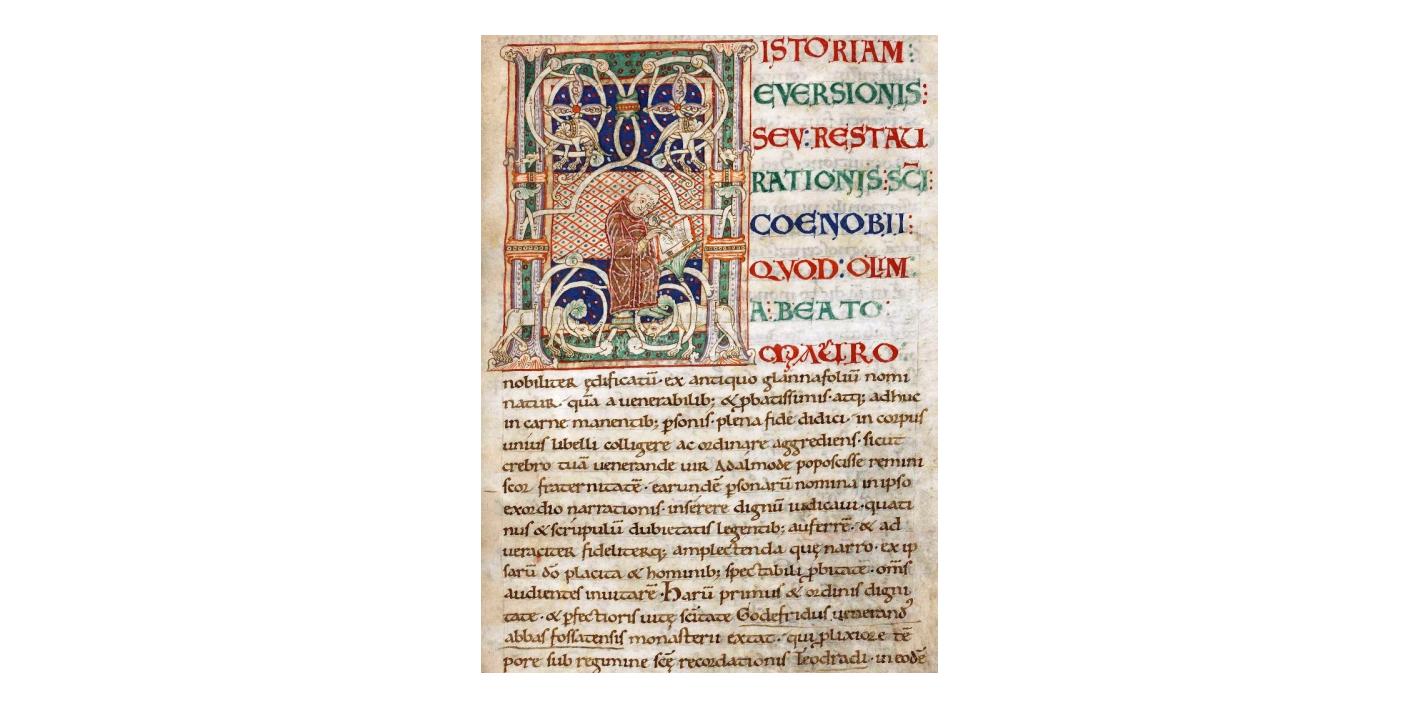 HISTORIAM:
EVERSIONIS:
SEV: RESTAU
RATIONIS: SC̄I:
COENOBII:
QVOD: OLIM
A: BEATO:
MAURO
nobiliter ędificatū· ex antiquo glannafoliū nomi
natur· quā a uenerabilib; & ꝓbatissimis· atq; adhuc
in carne manentib; ꝑsonis· plena fide didici· in corpus
unius libelli colligere ac ordinare aggrediens· sicut
crebro tuā uenerande uir Adalmode poposcisse remini
scor fraternitatē· earundē ꝑsonarū nomina in ipso
exordio narrationis· inserere dignū iudicaui· quati
nus & scrupulū dubietatis legentib; auferrē· & ad
ueraciter fideliterq; amplectenda quę narro· ex ip
sarū dō placita & hominib; spectabili ꝓbitate· om̄s
audientes inuitarē· Harū primus & ordinis digni
tate· & ꝑfectioris uitę sc̄itate Godefridus uenerand᾽
abbas fossatensis monasterii extat· qui ꝓlixiore tē
pore sub regimine scę̄ recordationis Teodradi· in eodē